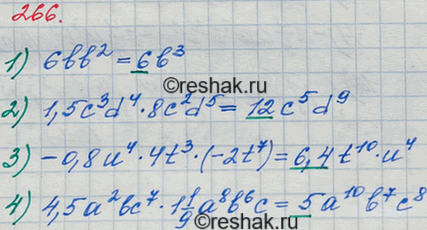 266.
1) 6bb² = 6b³
©reshak.ru
2) 1,5c³d⁴·8c²d⁵ = 12c⁵d⁹
3) -0,8u⁴·4t³·(-2t⁷) = 6,4t¹⁰·u⁴
4) 4,5a²bc⁷·1 1/9 a⁸b⁶c = 5a¹⁰b⁷c⁸
©reshak.ru